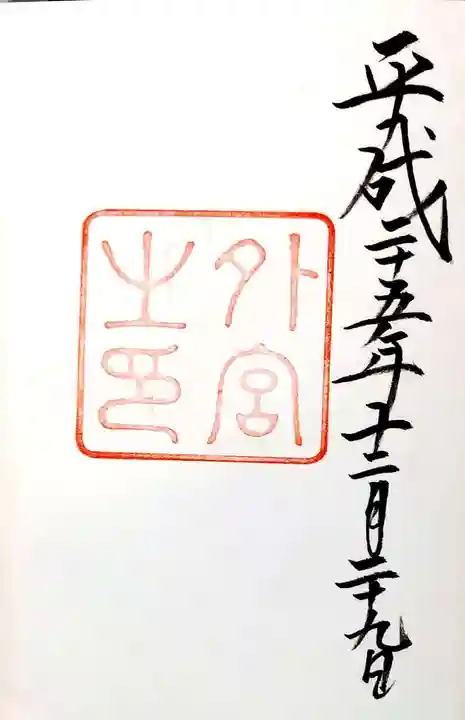 平成二十五年十二月二十九日
外宮
之印